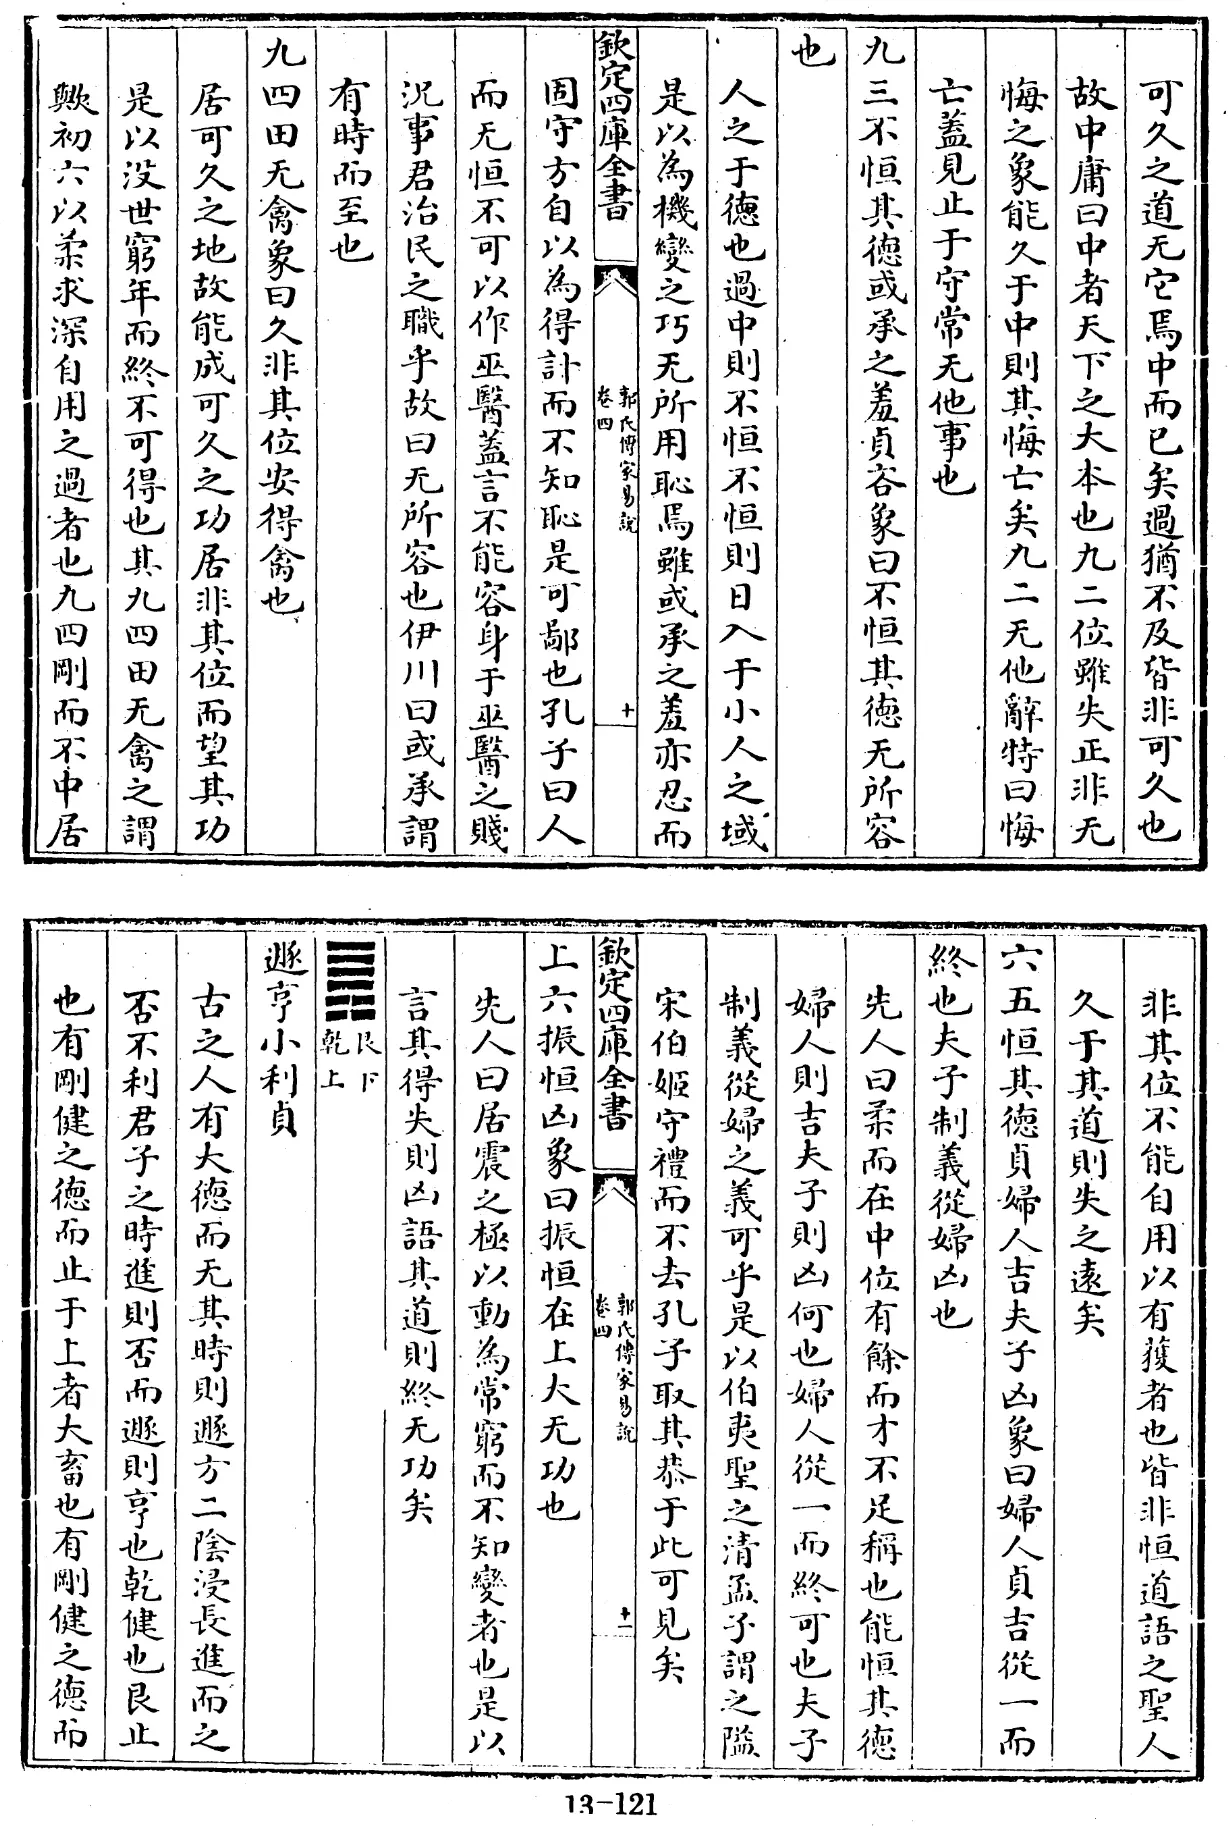 可久之道无它焉中而已矣過猶不及皆非可久也
故中庸曰中者天下之大本也九二位雖失正非无
悔之象能久于中則其悔亡矣九二无他辭特曰悔
亡蓋見止于守常无他事也
九三不恒其德或承之羞貞吝象曰不恒其德无所容
也
人之于德也過中則不恒不恒則日入于小人之域
是以為機變之巧无所用恥焉雖或承之羞亦忍而
欽定四庫全書
郭氏傳家易說
卷四
十
固守方自以為得計而不知恥是可鄙也孔子曰人
而无恒不可以作巫醫蓋言不能容身于巫醫之賤
況事君治民之職乎故曰无所容也伊川曰或承謂
有時而至也
九四田无禽象曰久非其位安得禽也
居可久之地故能成可久之功居非其位而望其功
是以没世窮年而終不可得也其九四田无禽之謂
歟初六以柔求深自用之過者也九四剛而不中居
非其位不能自用以有獲者也皆非恒道語之聖人
久于其道則失之遠矣
六五恒其德貞婦人吉夫子凶象曰婦人貞吉從一而
終也夫子制義從婦凶也
先人曰柔而在中位有餘而才不足稱也能恒其德
婦人則吉夫子則凶何也婦人從一而終可也夫子
制義從婦之義可乎是以伯夷聖之清孟子謂之隘
宋伯姬守禮而不去孔子取其恭于此可見矣
欽定四庫全書
郭氏傳家易說
卷四
十一
上六振恒凶象曰振恒在上大无功也
先人曰居震之極以動為常窮而不知變者也是以
言其得失則凶語其道則終无功矣
艮下
乾上
遯亨小利貞
古之人有大德而无其時則遯方二陰浸長進而之
否不利君子之時進則否而遯則亨也乾健也艮止
也有剛健之德而止于上者大畜也有剛健之德而
13-121